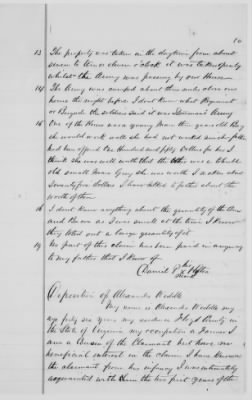 10
13 The property was taken in the daytime from about
seven to eleven o'clock it was taken openly
whilst the Army was passing by our House
14 The Army was camped about three miles above our
house the night before I dont know what Regiment
or Brigade the soldiers said it was Stoneman Army
15 One of the Horses was young more than year old they
she would work well she had not worked much father
had been offered One Hundred and fifty Dollars for her I
think she was well worth that the other was a
old small Mare Gray she was worth I
Seventy five Dollars I have talked to father about the
worth of them
16 I dont know anything about the quantity of the
and Bacon as I was small at the time I know
they toted out a large quantity of it
19 No part of this claim has been paid in anyway
to my father that I know of
Daniel P his X mark
Deposition of Alexander Weddle
My name is Alexander Weddle my
age fifty six years my residence Floyd County in
the State of Virginia my occupation a Farmer I
am a Cousin of the Claimant but have no
beneficial interest in the claim I have known
the claimant from his infancy I was intimately
acquainted with him the first years of the